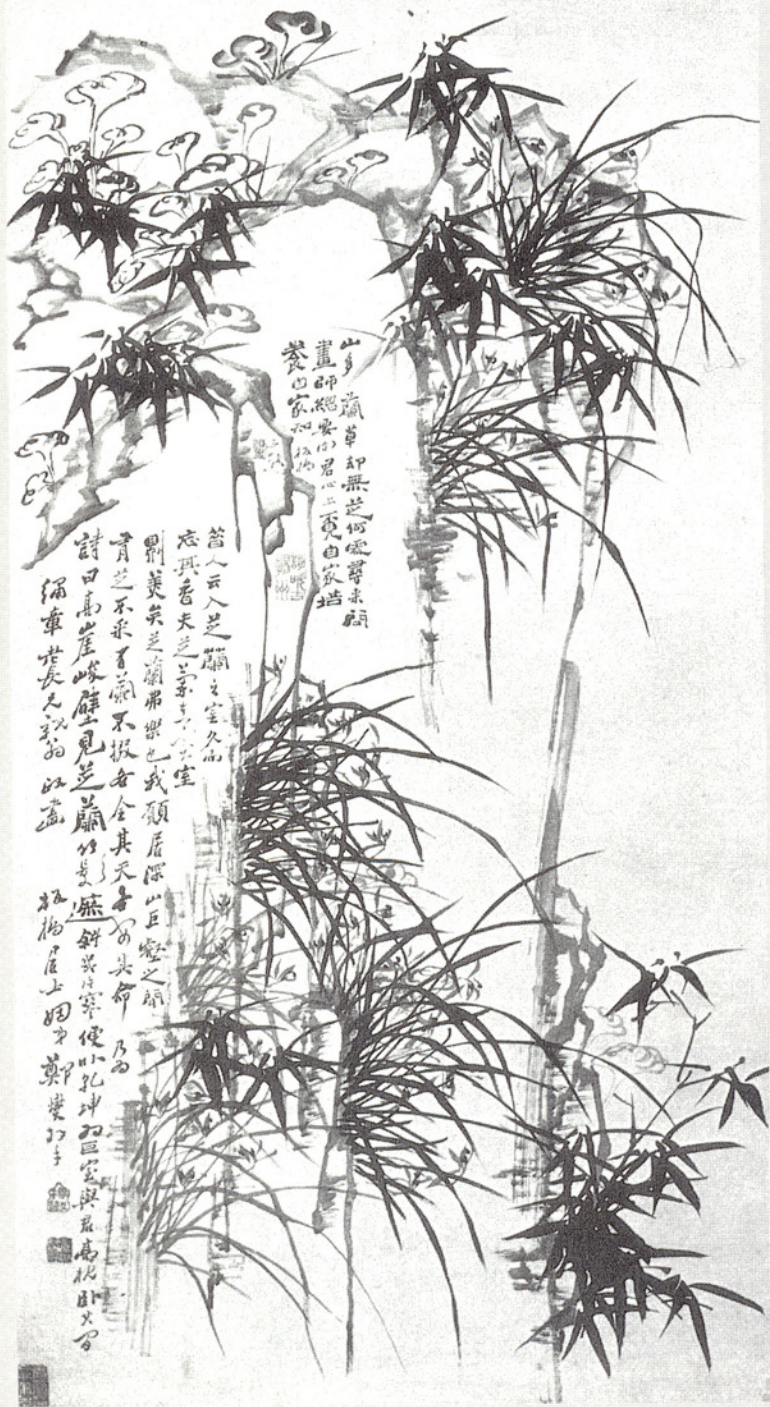 山多蘭草却無芝何處尋來問
畫師總要向君心上覓自家培
養自家知 板橋
昔人云入芝蘭之室久而
忘其香夫芝蘭入室室
則美矣芝蘭弗樂也我願居深山巨壑之間
有芝不采有蘭不掇各全其天各安其命 乃為
詩曰高崖峻壁見芝蘭竹影遮斜幾片寒便以乾坤為巨室與君高枕卧其間
章 長兄親翁 政 板橋居士姻弟鄭燮拜手